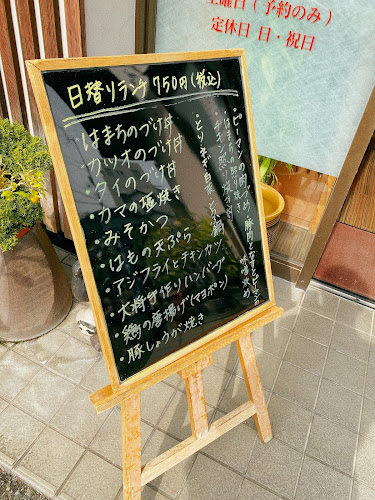 土曜日(予約のみ)
定休日 日・祝日
日替りランチ 750円(税込)
・はまちのづけ丼
・カツオのづけ丼
・タイのづけ丼
・カマの塩焼き
・みそかつ
・はもの天ぷら
・アジフライとチキンカツ
・大将手作りハンバーグ
・鶏の唐揚げ(マヨポン)
・豚しょうが焼き
・ピーマンの肉づめ
・はまちの照り焼き
・チキン照り焼き